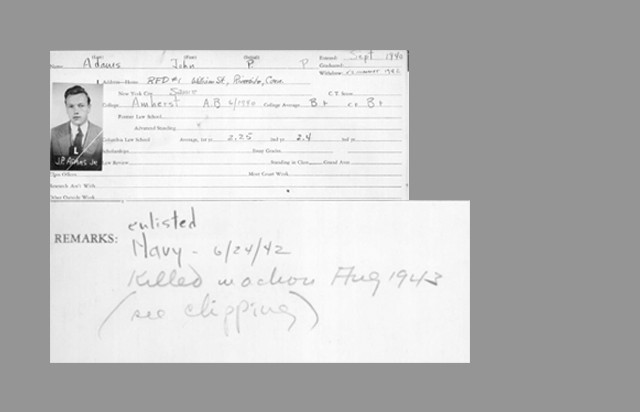 (Last) (First) (Initial)
Name Adams John P. P Entered Sept 1940
Graduated
Withdrew
Address—Home RFD #1 William St., Conn.
New York City Same C. T. Score
College Amherst A.B 6/1940 College Average B+ B+
Former Law School
Advanced Standing
Columbia Law School Average, 1st yr. 2.25 2nd yr. 2.4 3rd yr.
Scholarships Essay Grades
Law Review Standing in Class Grand Aver.
Other Offices Moot Court Work
Research Ass't Work
Other Outside Work
J.P. ADAMS JR
REMARKS: enlisted
Navy - 6/24/42
Killed in action Aug 1943
(see clipping)